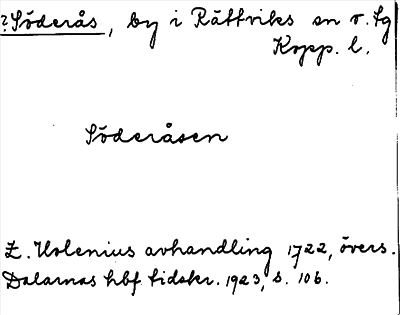 ?Söderås, by i Rättviks sn o. tg
Kopp. l.
Söderåsen
Z. Holenius avhandling 1722, övers.
Dalarnas hbf tidskr. 1923, s. 106.